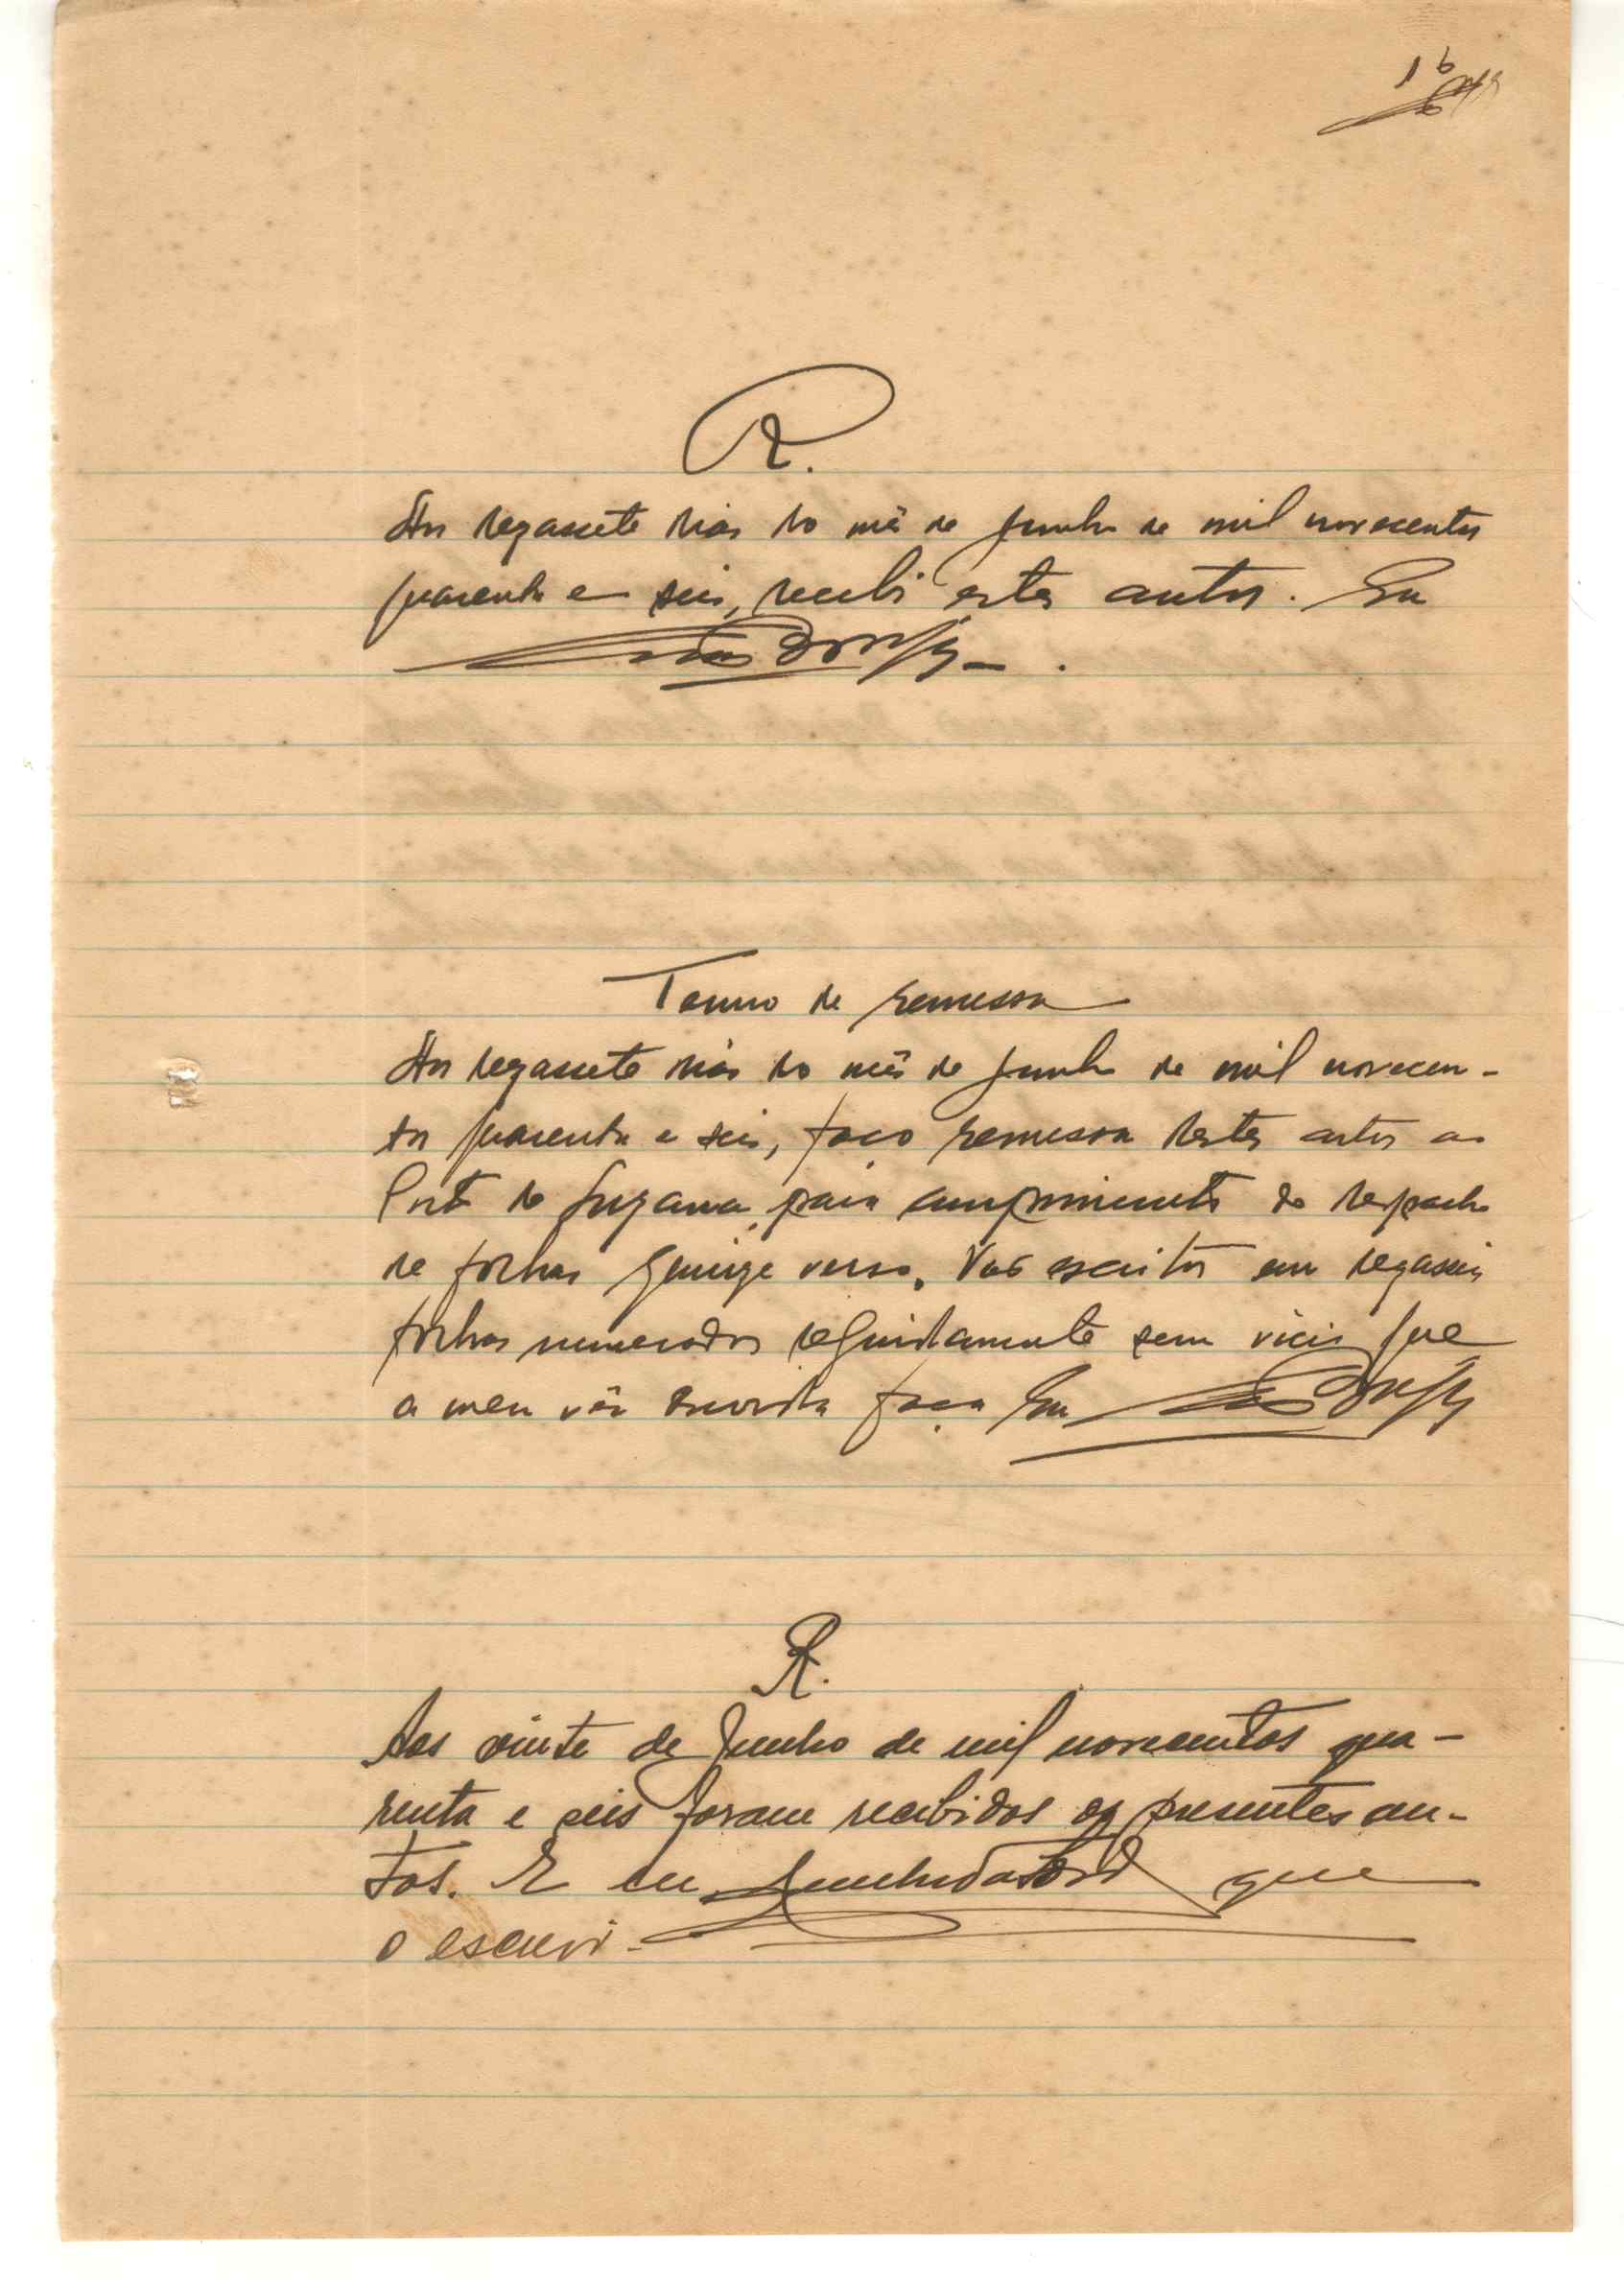 16
R.
Aos dezassete dias do mês de Junho de mil novecentos
quarenta e seis, recebi estes autos. Eu
Termo de remessa
Aos dezassete dias do mês de Junho de mil novecen-
tos quarenta e seis, faço remessa destes autos ao
Posto de para cumprimento do despacho
de folhas quinze verso. Vão escritos em dezasseis
folhas numeradas seguidamente sem vicio que
a meu vêr duvida faça Eu
R.
Aos vinte de Junho de mil novecentos qua-
renta e seis foram recebidos os presentes au-
tos. E eu que
o escrevi.